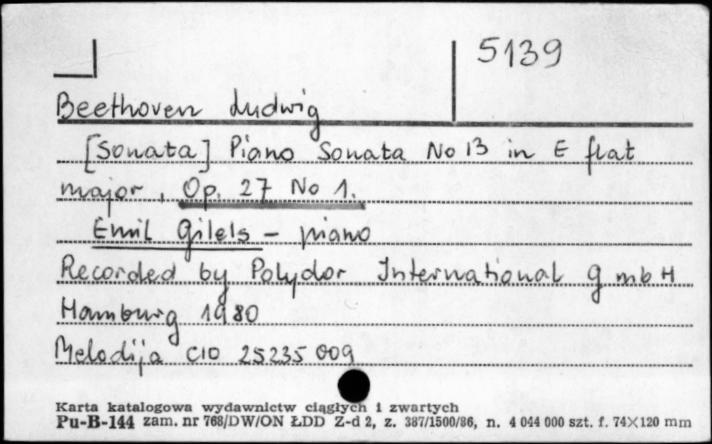 5139
Beethoven Ludwig
[Sonata] Piano Sonata No 13 in E flat
major, Op. 27 No 1.
Emil Gilels - piano
Recorded by Polydor International GmbH
Hamburg 1980
Melodija C10 25235 009
Karta katalogowa wydawnictw ciągłych i zwartych
Pu-B-144 zam. nr 768/DW/ON ŁDD Z-d 2, z. 387/1500/86, n. 4 044 000 szt. f. 74×120 mm